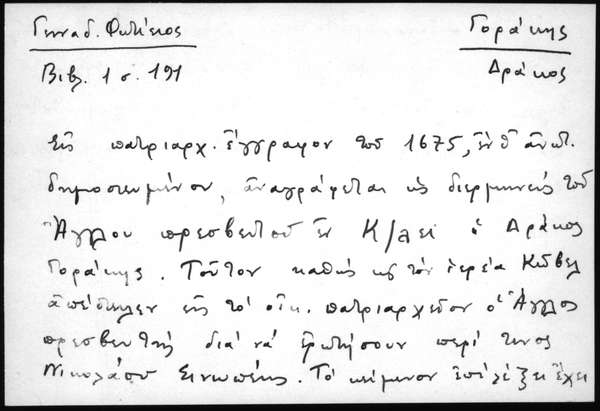 Γενναδ. Φωτίειος
Γοράκης
Βιβλ. 1 σ. 191
Δράκος
Εἰς πατριαρχ. ἔγγραφον τοῦ 1675, ἐνθ' ἀνωτ.
δημοσιευμένον, ἀναγράφεται ὡς διερμηνεύς τοῦ
Ἄγγλου πρεσβευτοῦ ἐν Κ/λει ὁ Δράκος
Γοράκης. Τοῦτον καθώς κ τόν ἱερέα Κόβελ
ἀπέστειλεν εἰς τό οἰκ. πατριαρχεῖον ὁ Ἄγγλος
πρεσβευτής διά νά ἐρωτήσουν περί τινος
Νικολάου Σινωπέως. Τό κείμενον ἐπί λέξει ἔχει